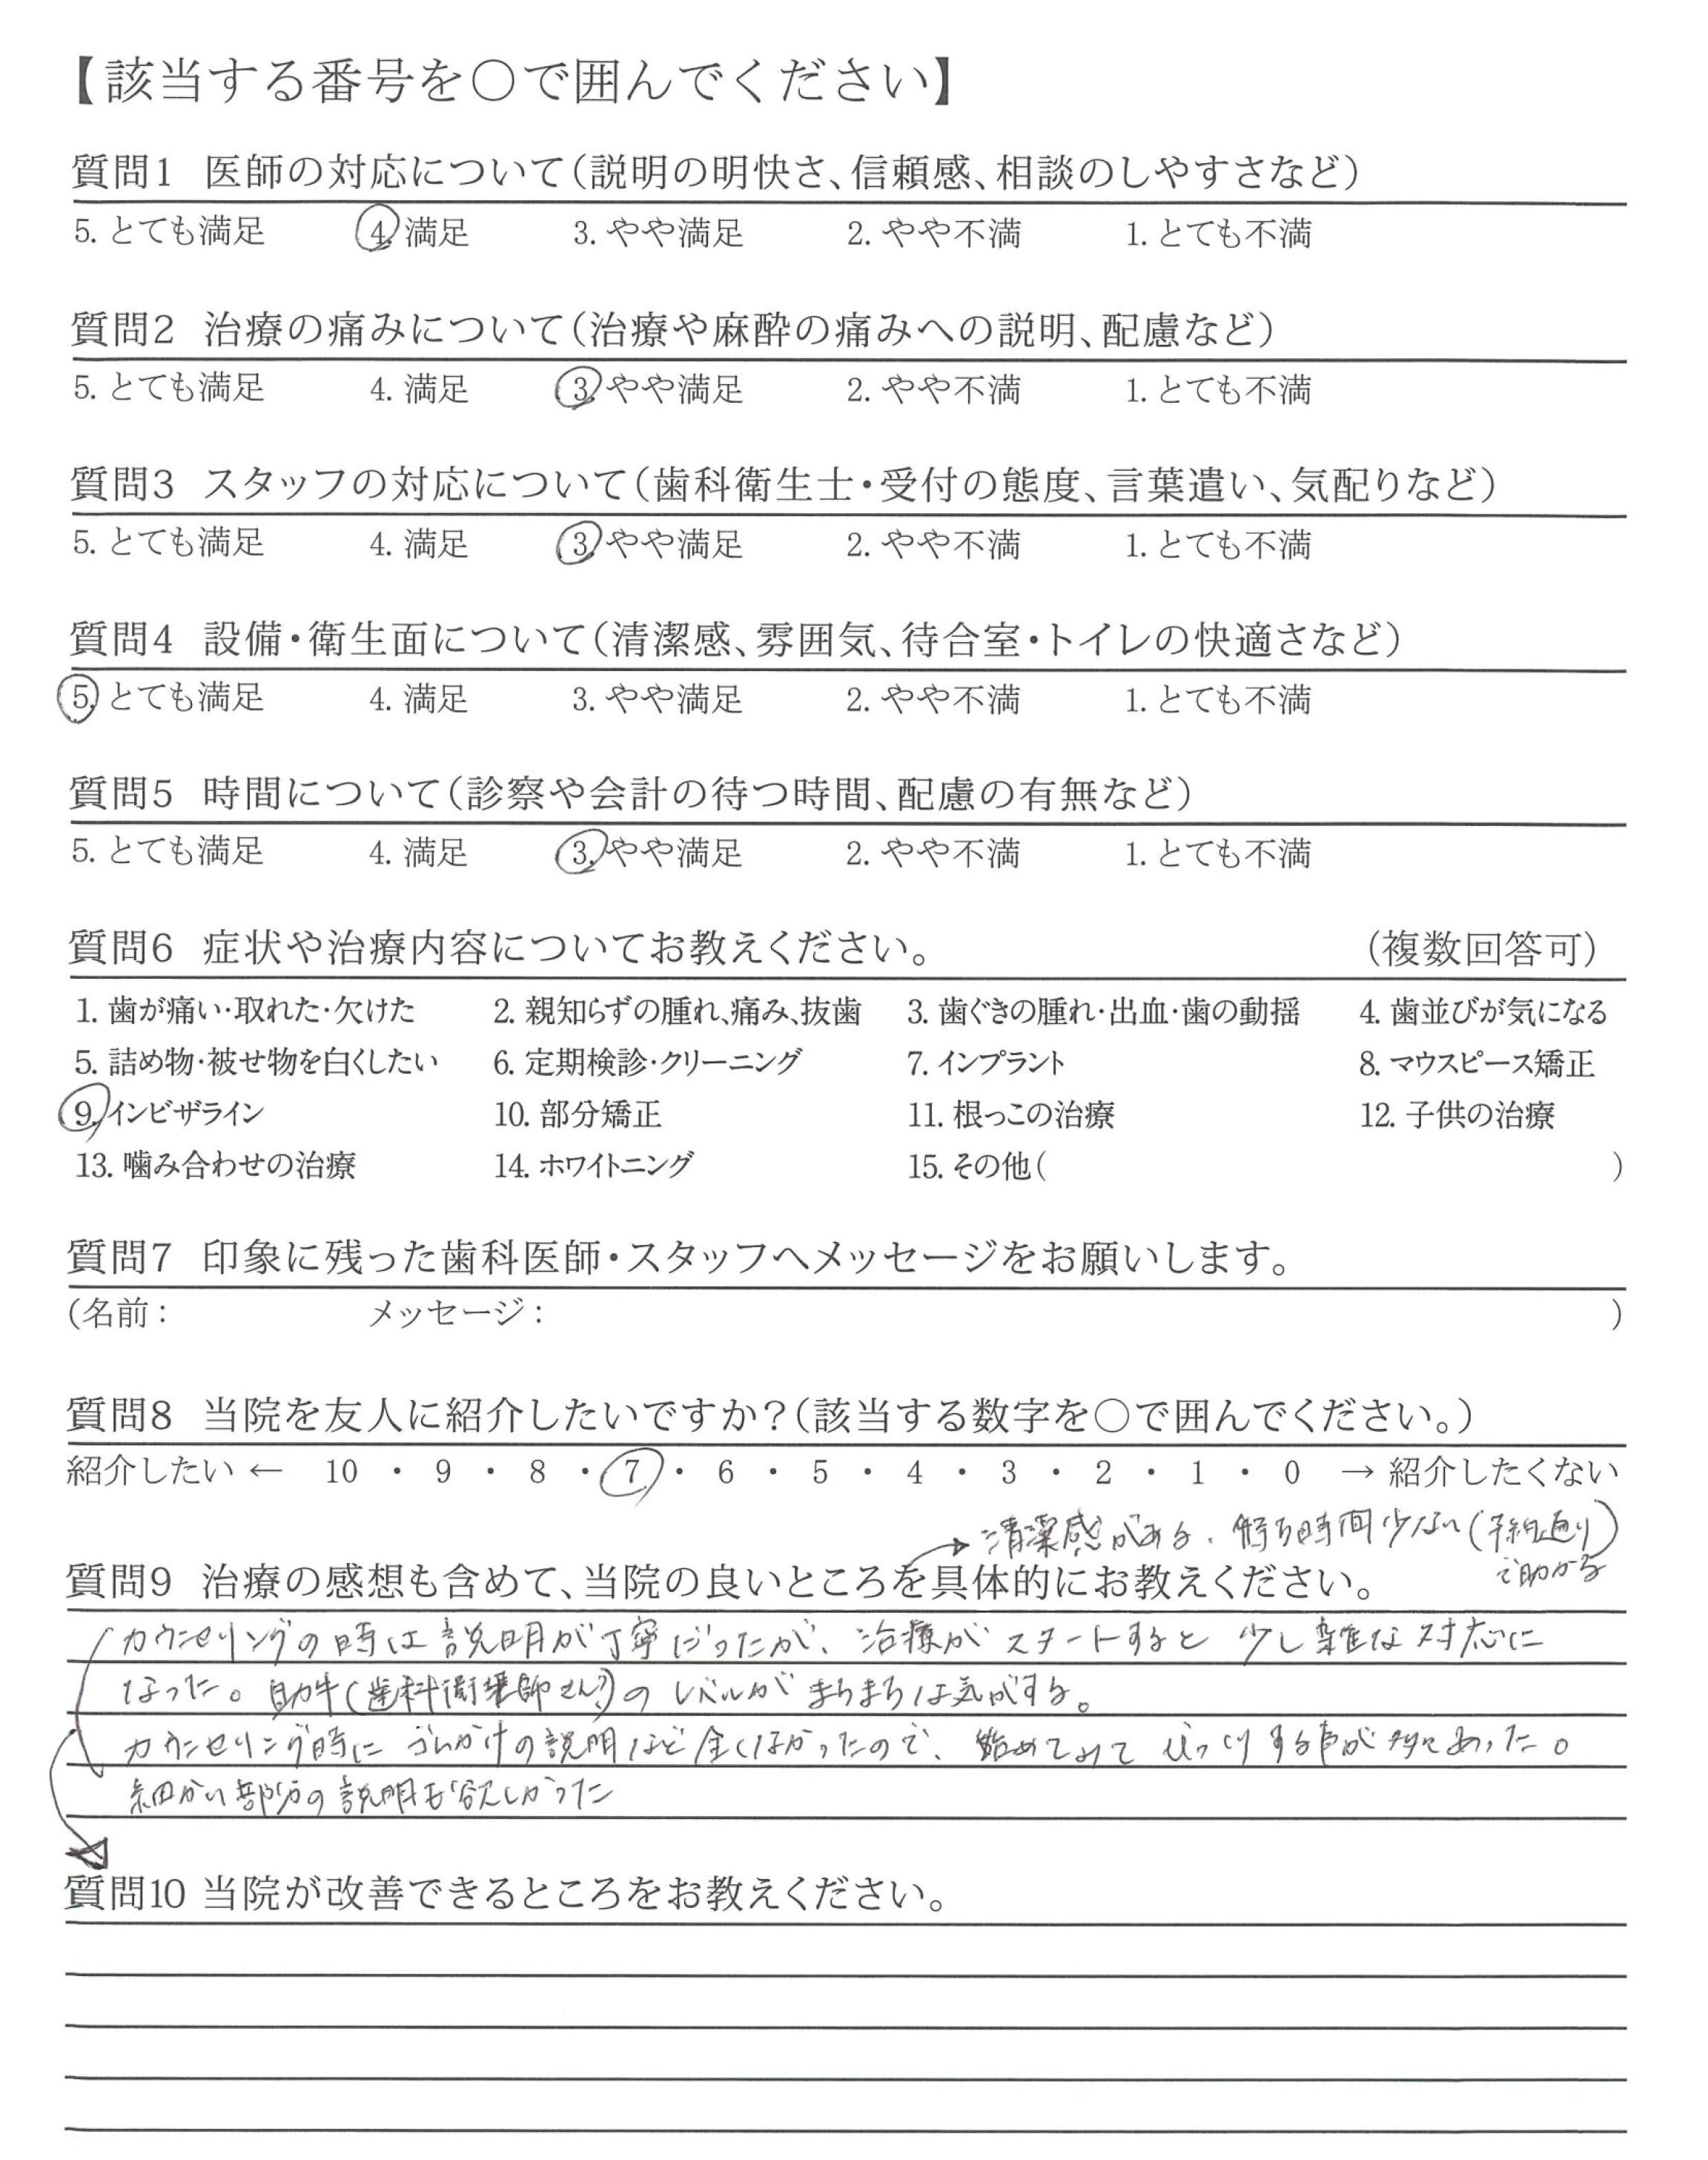 【該当する番号を○で囲んでください】
質問1 医師の対応について(説明の明快さ、信頼感、相談のしやすさなど)
5. とても満足 4. 満足 3. やや満足 2. やや不満 1. とても不満
質問2 治療の痛みについて(治療や麻酔の痛みへの説明、配慮など)
5. とても満足 4. 満足 3. やや満足 2. やや不満 1. とても不満
質問3 スタッフの対応について(歯科衛生士・受付の態度、言葉遣い、気配りなど)
5. とても満足 4. 満足 3. やや満足 2. やや不満 1. とても不満
質問4 設備・衛生面について(清潔感、雰囲気、待合室・トイレの快適さなど)
5. とても満足 4. 満足 3. やや満足 2. やや不満 1. とても不満
質問5 時間について(診察や会計の待つ時間、配慮の有無など)
5. とても満足 4. 満足 3. やや満足 2. やや不満 1. とても不満
質問6 症状や治療内容についてお教えください。 (複数回答可)
1. 歯が痛い・取れた・欠けた 2. 親知らずの腫れ、痛み、抜歯 3. 歯ぐきの腫れ・出血・歯の動揺 4. 歯並びが気になる
5. 詰め物・被せ物を白くしたい 6. 定期検診・クリーニング 7. インプラント 8. マウスピース矯正
9. インビザライン 10. 部分矯正 11. 根っこの治療 12. 子供の治療
13. 噛み合わせの治療 14. ホワイトニング 15. その他( )
質問7 印象に残った歯科医師・スタッフへメッセージをお願いします。
(名前: メッセージ: )
質問8 当院を友人に紹介したいですか?(該当する数字を○で囲んでください。)
紹介したい ← 10 ・ 9 ・ 8 ・ 7 ・ 6 ・ 5 ・ 4 ・ 3 ・ 2 ・ 1 ・ 0 → 紹介したくない
清潔感がある。待ち時間少ない(予約通り)
で助かる
質問9 治療の感想も含めて、当院の良いところを具体的にお教えください。
カウンセリングの時は説明が丁寧だったが、治療がスタートすると少し雑な対応に
なった。助手(歯科衛生師さん?)のレベルがまちまちな気がする。
カウンセリング時にゴムかけの説明など全くなかったので、始めてみてびっくりする事が多々あった。
細かい部分の説明も欲しかった
質問10 当院が改善できるところをお教えください。